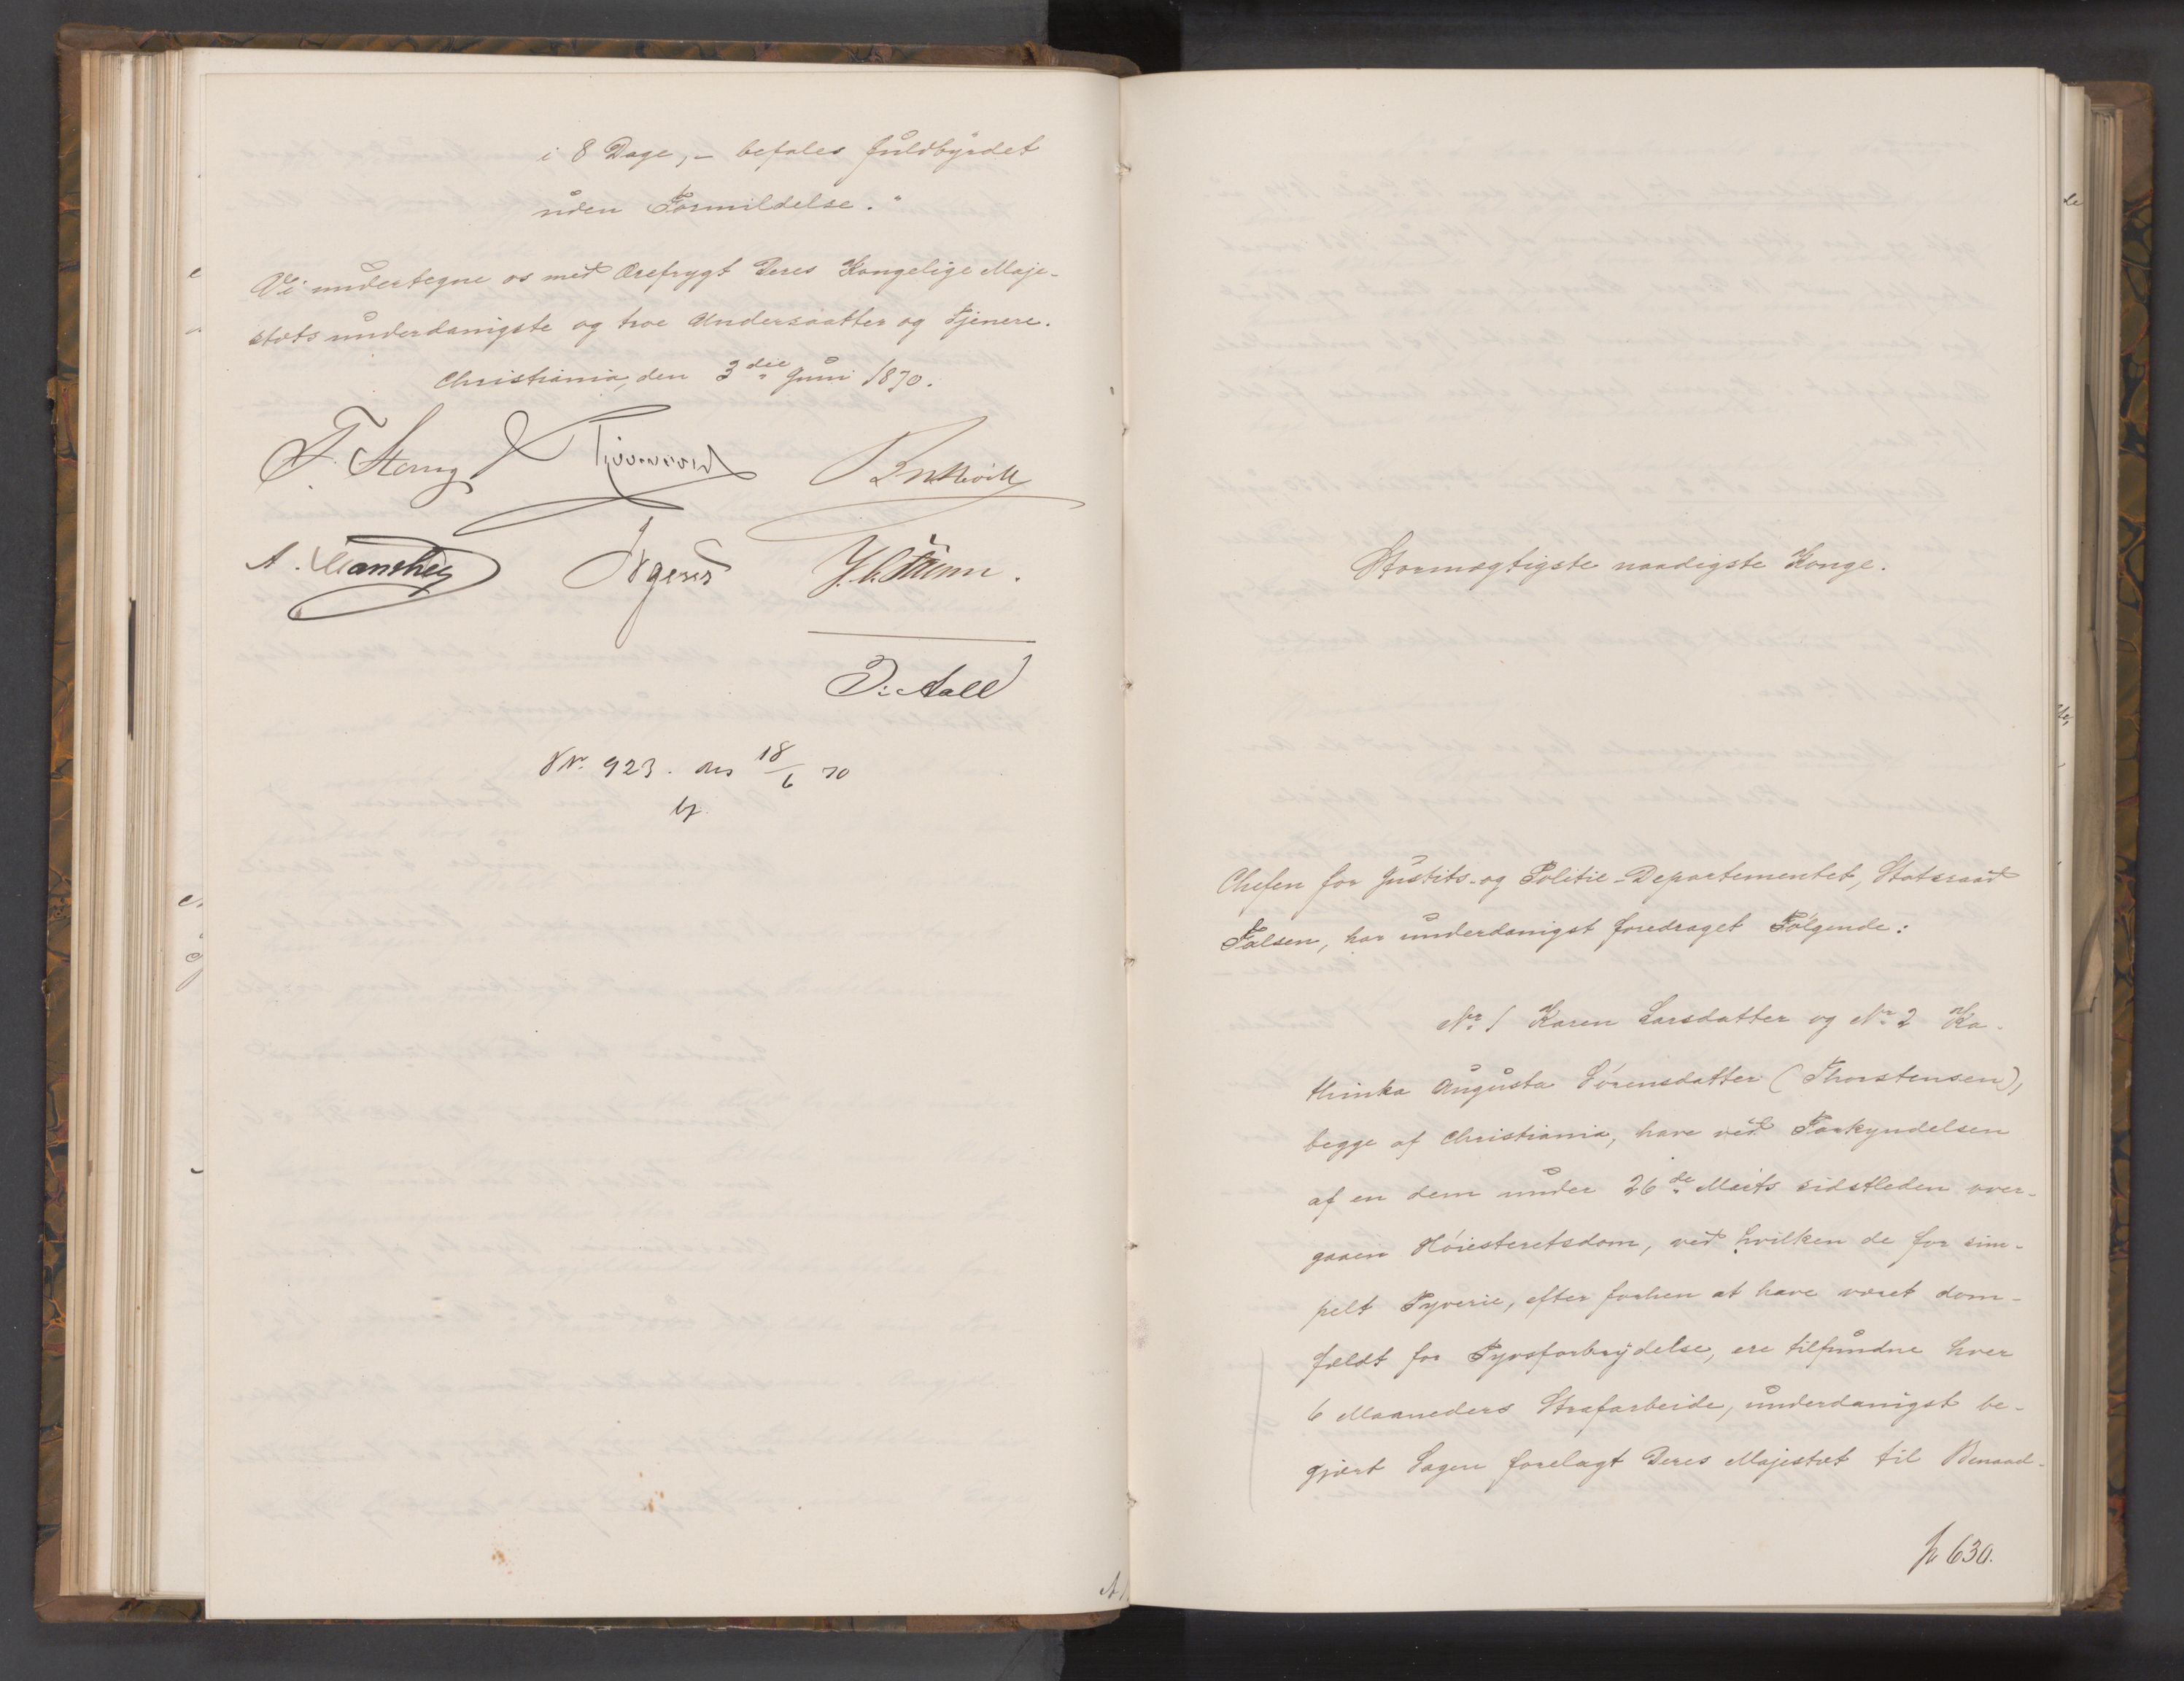 i 8 Dage, - befales fuldbyrdet
uden Formildelse."
Vi undertegne os med Ærefrygt Deres Kongelige Maje-
stæts underdanigste og troe Undersaatter og Tjenere.
Christiania, den 3die Juni 1870.
F. Stang
A. Manthey Irgens
D: Aall
J№. 923. 18/6 70
Stormægtigste naadigste Konge.
Chefen for Justits- og Politie-Departementet, Statsraad
Falsen, har underdanigst foredraget Følgende:
№ 1 Karen Larsdatter og № 2 Ka-
thinka Augusta Sørensdatter (Thorstensen),
begge af Christiania, have ved Forkyndelsen
af en dem under 26de Marts sidstleden over-
gaaen Høiesteretsdom, ved hvilken de for sim-
pelt Tyverie, efter forhen at have været dom-
fældt for Tyvsforbrydelse, ere tilfundne hver
6 Maaneders Strafarbeide, underdanigst be-
gjært Sagen forelagt Deres Majestæt til Benaad-
630.